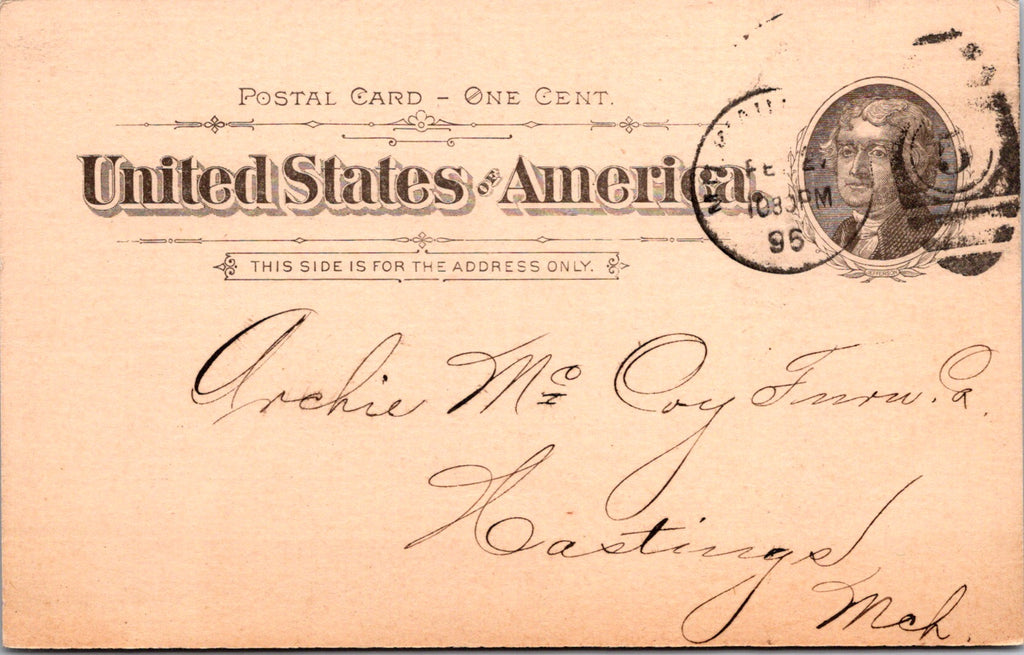 POSTAL CARD – ONE CENT.
United States OF America
THIS SIDE IS FOR THE ADDRESS ONLY.
FE
1030PM
96
JEFFERSON
Archie Mc Coy Furn. Co.
Hastings
Mch.